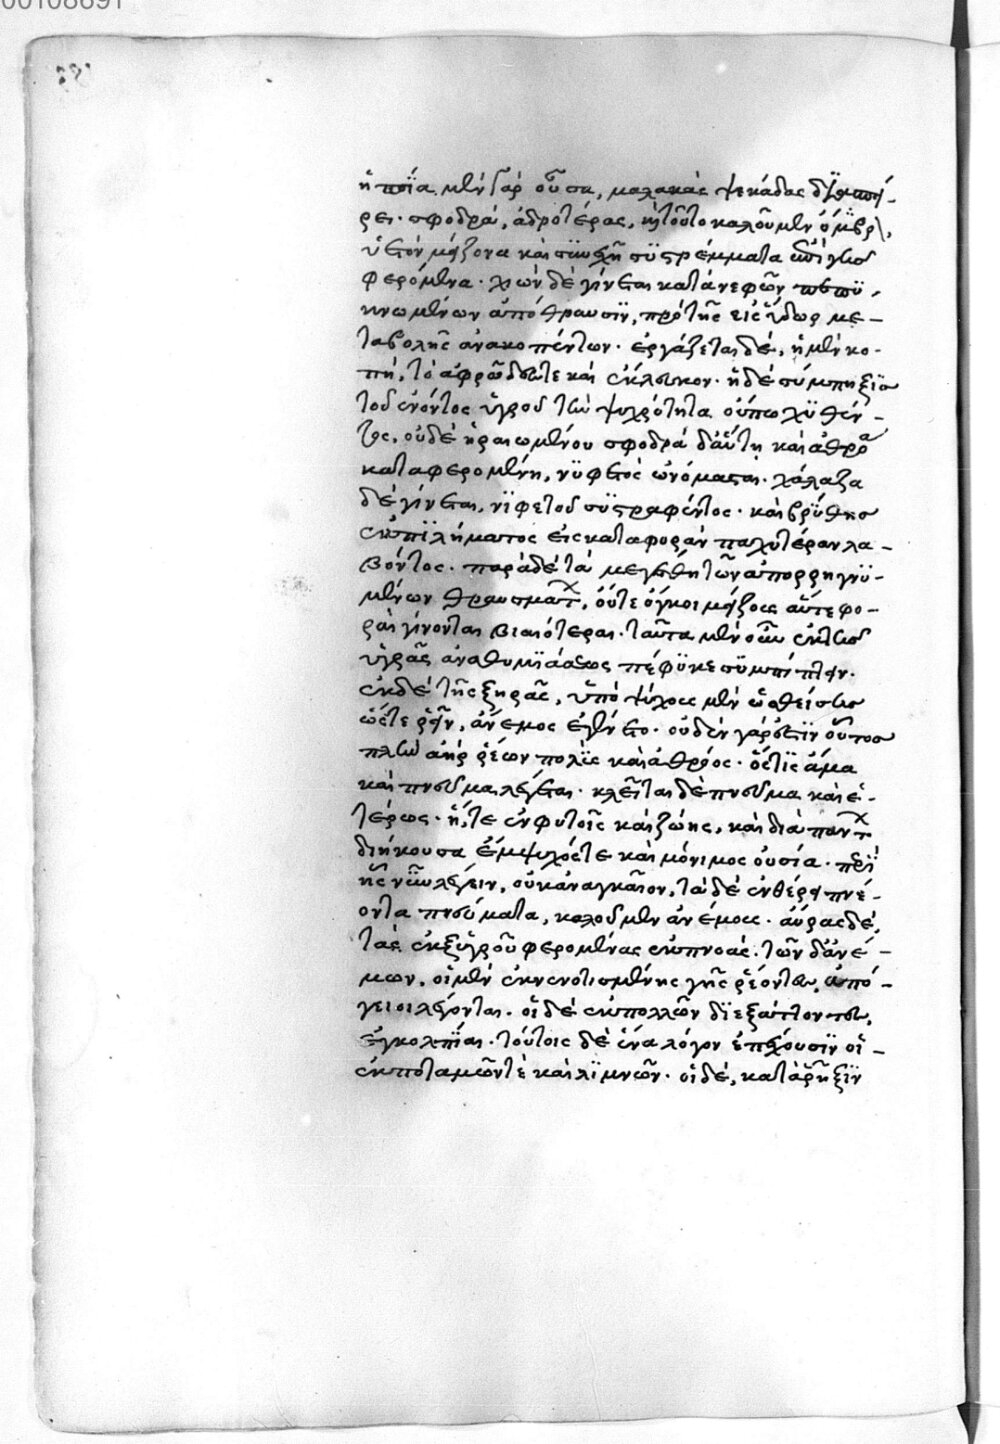 00108691
ἠπΐα μὲν γὰρ οὖσα, μαλακὰς ψεκάδας δϊασπεί-
ρει· σφοδρὰ, ἁδροτέρας, κὴ τοῦτο καλοῦμεν ὄμβρον,
ὑετὸν μείζονα καὶ συνεχῆ συστρέμματα ἐπὶ γῆς
φερόμενα· χιὼν δὲ γίνεται κατὰ νεφῶν πεπυ-
κνωμένων ἀπόθραυσϊν, πρὸ τῆς εἰς ὕδωρ με-
ταβολῆς ἀνακοπέντων· ἐργάζεται δὲ, ἡ μὲν κο-
πὴ, τὸ ἀφρῶδες τε καὶ ἔκλευκον· ἡ δὲ σύμπηξϊς
τοῦ ἐνόντος ὑγροῦ τὴν ψυχρότητα οὔπω χϋθέν-
τος, οὐδὲ ἠραιωμένου σφοδρὰ δ' αὕτη καὶ ἀθρόα
καταφερομένη, νϋφετὸς ὠνόμασται· χάλαζα
δὲ γίνεται, νϊφετοῦ συστραφέντος· καὶ βρύθης
ἐκ πϊλήματος εἰς καταφορὰν παχυτέραν λα-
βόντος· παρὰ δὲ τὰ μεγέθη τῶν ἀπορρηγνϋ-
μένων θραυσμάτων, οὔτε ὄγκοι μείζους αὔτε φο-
ραὶ γίνονται βιαιότεραι· ταῦτα μὲν οὖν ἐκ τῆς
ὑγρᾶς ἀναθυμϊάσεως πέφϋκε συμπίπτειν·
ἐκ δὲ τῆς ξηρᾶς, ὑπὸ ψύχους μὲν ὠσθείσης
ὥστε ῥεῖν, ἄνεμος ἐγένετο· οὐδὲν γάρ ἐστϊν οὗτος
πλὴν ἀὴρ ῥέων πολὺς καὶ ἀθρόος· ὅστϊς ἅμα
καὶ πνεῦμα λέγεται· κλεῖται δὲ πνεῦμα καὶ ἑ-
τέρως· ἥ, τε ἐν φυτοῖς καὶ ζώης, καὶ διὰ πάντων
διήκουσα ἔμψυχός τε καὶ μόνιμος οὐσία· περὶ
ἧς νῦν λέγειν, οὐκ ἀναγκαῖον, τὰ δὲ ἐν θέρει πνέ-
οντα πνεύματα, καλοῦμεν ἀνέμους· αὔρας δὲ,
τὰς ἐκ ξυγροῦ φερομένας ἐκπνοάς. τῶν δ' ἀνέ-
μων, οἱ μὲν ἐκ νενοτισμένης γῆς ῥέοντες, ἀπό-
γειοι λέγονται· οἱ δὲ ἐκ πολλῶν δϊεξάττοντες,
ἐγκολπΐαι· τούτοις δὲ ἀνάλογον ἐπέχουσϊν οἱ-
ἐκ ποταμῶν τὲ καὶ λϊμνῶν· οἱ δὲ, κατὰ ῥῆξϊν